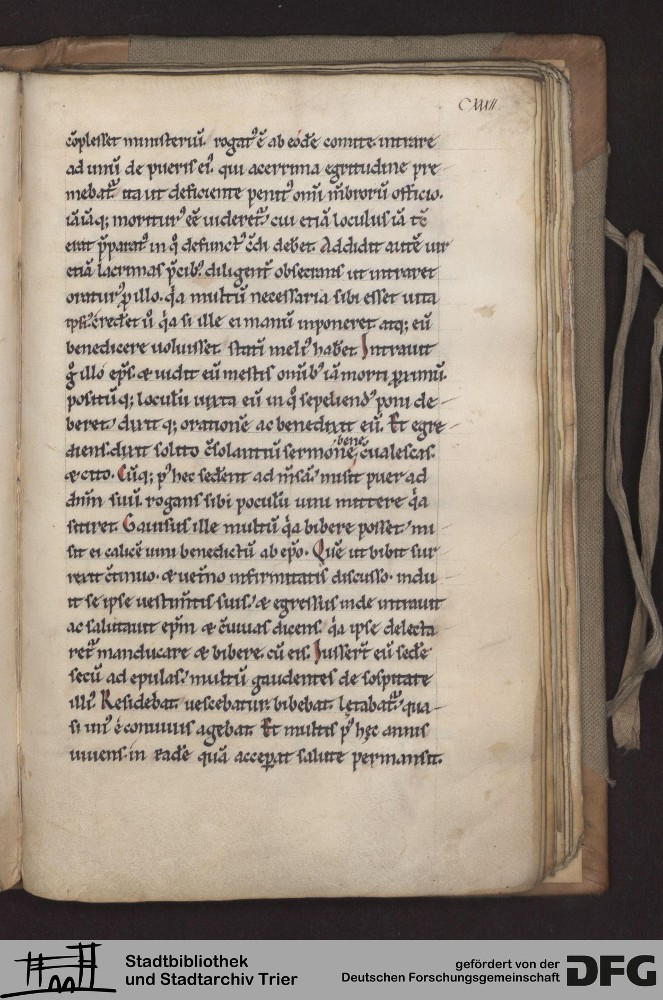 CXXXII
cōplesset ministeriū. rogatꝰ ē ab eodē comite intrare
ad unū de pueris eiꝰ. qui acerrima egritudine pre
mebatᷣ. ita ut deficiente penitꝰ omī mēbrorū officio.
iā iāq; moriturꝰ eē uideretᷣ. cui etiā loculus iā tē
erat p̄paratꝰ in q̊ defunctꝰ cōdi debet. Addidit autē uir
etiā lacrimas p̄cibꝰ diligentᷣ obsecrans ut intraret
oraturꝰ ꝓ illo. q̇a multū necessaria sibi esset uita
ipsiꝰ. crederet ū q̇a si ille ei manū inponeret atq; eū
benedicere uoluisset. statī meliꝰ habet. Intrauit
g̊ illo ep̄s. & uidit eū mestis omībꝰ iā morti ꝓximū.
positūq; loculū iuxta eū in q̊ sepeliendꝰ poni de-
beret. dixitq; orationē ac benedixit eū. Et egre-
diens dixit solito c̄solantiū sermone, bene cualescas.
& cito. Cūq; pꝰ hec sederent ad m̄sā. misit puer ad
dnm suū. rogans sibi poculū uini mittere q̇a
sitiret. Gauisus ille multū q̇a bibere posset. mi-
sit ei calicē uini benedictū ab ep̄o. Quē ut bibit sur
rexit c̄tinuo. & uetīno infirmitatis discusso. indu
it se ipse uestimītis suis. & egressus inde intrauit
ac salutauit ep̄m & c̄uiuas dicens. q̇a ipse delecta
retᷣ manducare & bibere. cū eis. Iusserūt eū sedē
secū ad epulas. multū gaudentes de sospitate
illiꝰ. Residebat. uescebatur. bibebat. lętabatᷣ. qua-
si unꝰ ē conuiuis agebat. Et multis pꝰ hęc annis
uiuens in eadē quā acceꝑat salute permansit.
Stadtbibliothek
und Stadtarchiv Trier
gefördert von der
Deutschen Forschungsgemeinschaft
DFG